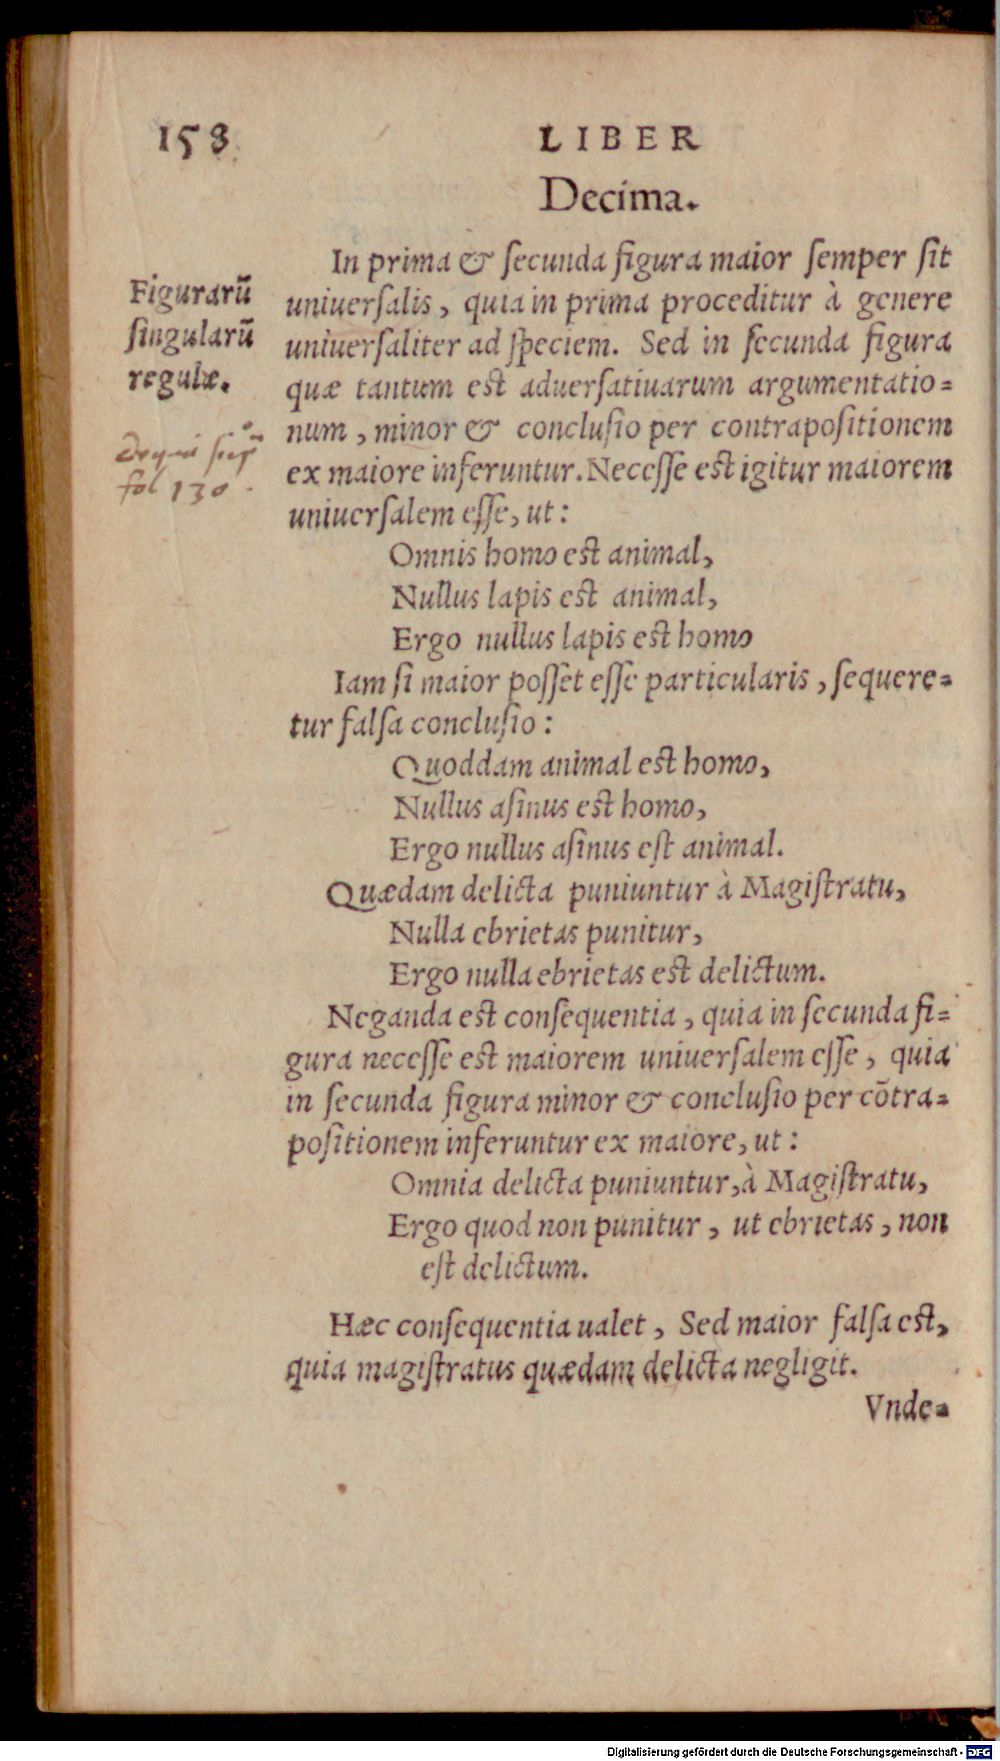 158 LIBER
Decima.
In prima & ſecunda figura maior ſemper ſit
uniuerſalis, quia in prima proceditur à genere
uniuerſaliter ad ſpeciem. Sed in ſecunda figura
quæ tantum eſt aduerſatiuarum argumentatio-
num, minor & concluſio per contrapoſitionem
ex maiore inferuntur. Neceſſe eſt igitur maiorem
uniuerſalem eſſe, ut:
Omnis homo eſt animal,
Nullus lapis eſt animal,
Ergo nullus lapis eſt homo
Iam ſi maior poſſet eſſe particularis, ſequere-
tur falſa concluſio:
Quoddam animal eſt homo,
Nullus aſinus eſt homo,
Ergo nullus aſinus eſt animal.
Quædam delicta puniuntur à Magiſtratu,
Nulla ebrietas punitur,
Ergo nulla ebrietas eſt delictum.
Neganda eſt conſequentia, quia in ſecunda fi-
gura neceſſe eſt maiorem uniuerſalem eſſe, quia
in ſecunda figura minor & concluſio per cōtra-
poſitionem inferuntur ex maiore, ut:
Omnia delicta puniuntur, à Magiſtratu,
Ergo quod non punitur, ut ebrietas, non
eſt delictum.
Hæc conſequentia ualet, Sed maior falſa eſt,
quia magiſtratus quædam delicta negligit.
Vnde-
Figurarū
ſingularū
regulæ.
fol 130.
Digitalisierung gefördert durch die Deutsche Forschungsgemeinschaft - DFG